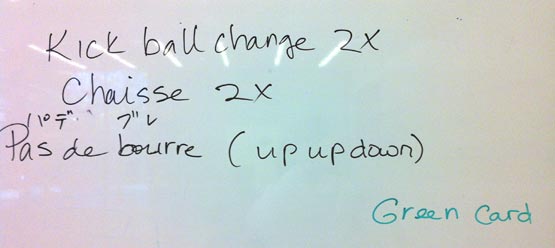 Kick ball change 2X
Chaisse 2X
パデ ブレ
Pas de bourre (up up down)
Green Card